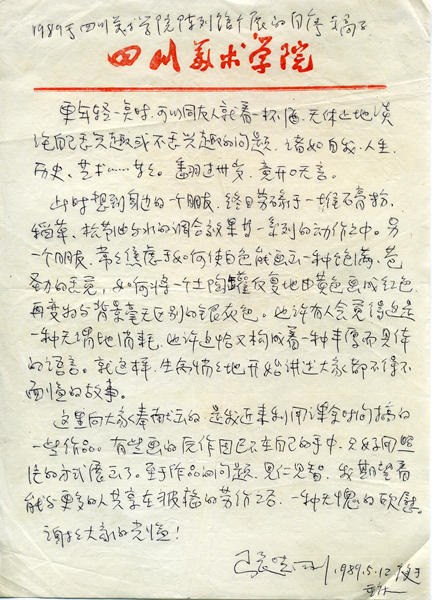 1989年四川美术学院陈列馆个展的自序手稿
四川美术学院
更年轻一点时,可以同友人就着一杯酒,无休止地谈
论自己感兴趣或不感兴趣的问题,诸如自我、人生、
历史、艺术……等等。翻过卅岁,竟开口无言。
此时想到身边的一个朋友,终日劳碌于一堆石膏粉、
稻草、松节油与水的调合效果等一系列的动作之中。另
一个朋友,常常焦虑于如何使白色能画出一种饱满、苍
劲的意,如何将一个土陶罐反复地由黄色画成红色,
再变为与背景毫无区别的银灰色。也许有人会觉得这是
一种无谓地消耗,也许这恰又构成着一种丰厚而具体
的语言。就这样,生活情绪地开始讲述大家都不得不
面临的故事。
这里向大家奉献出的,是我近来利用课余时间搞的
一些作品。有些画的原作因已不在自己的手中,只好用照
片的方式展示了。至于作品的问题,见仁见智,我期望着
能与更多的人共享在疲惫的劳作之后,一种无愧的欣慰。
谢谢大家的光临!
1989.5.12